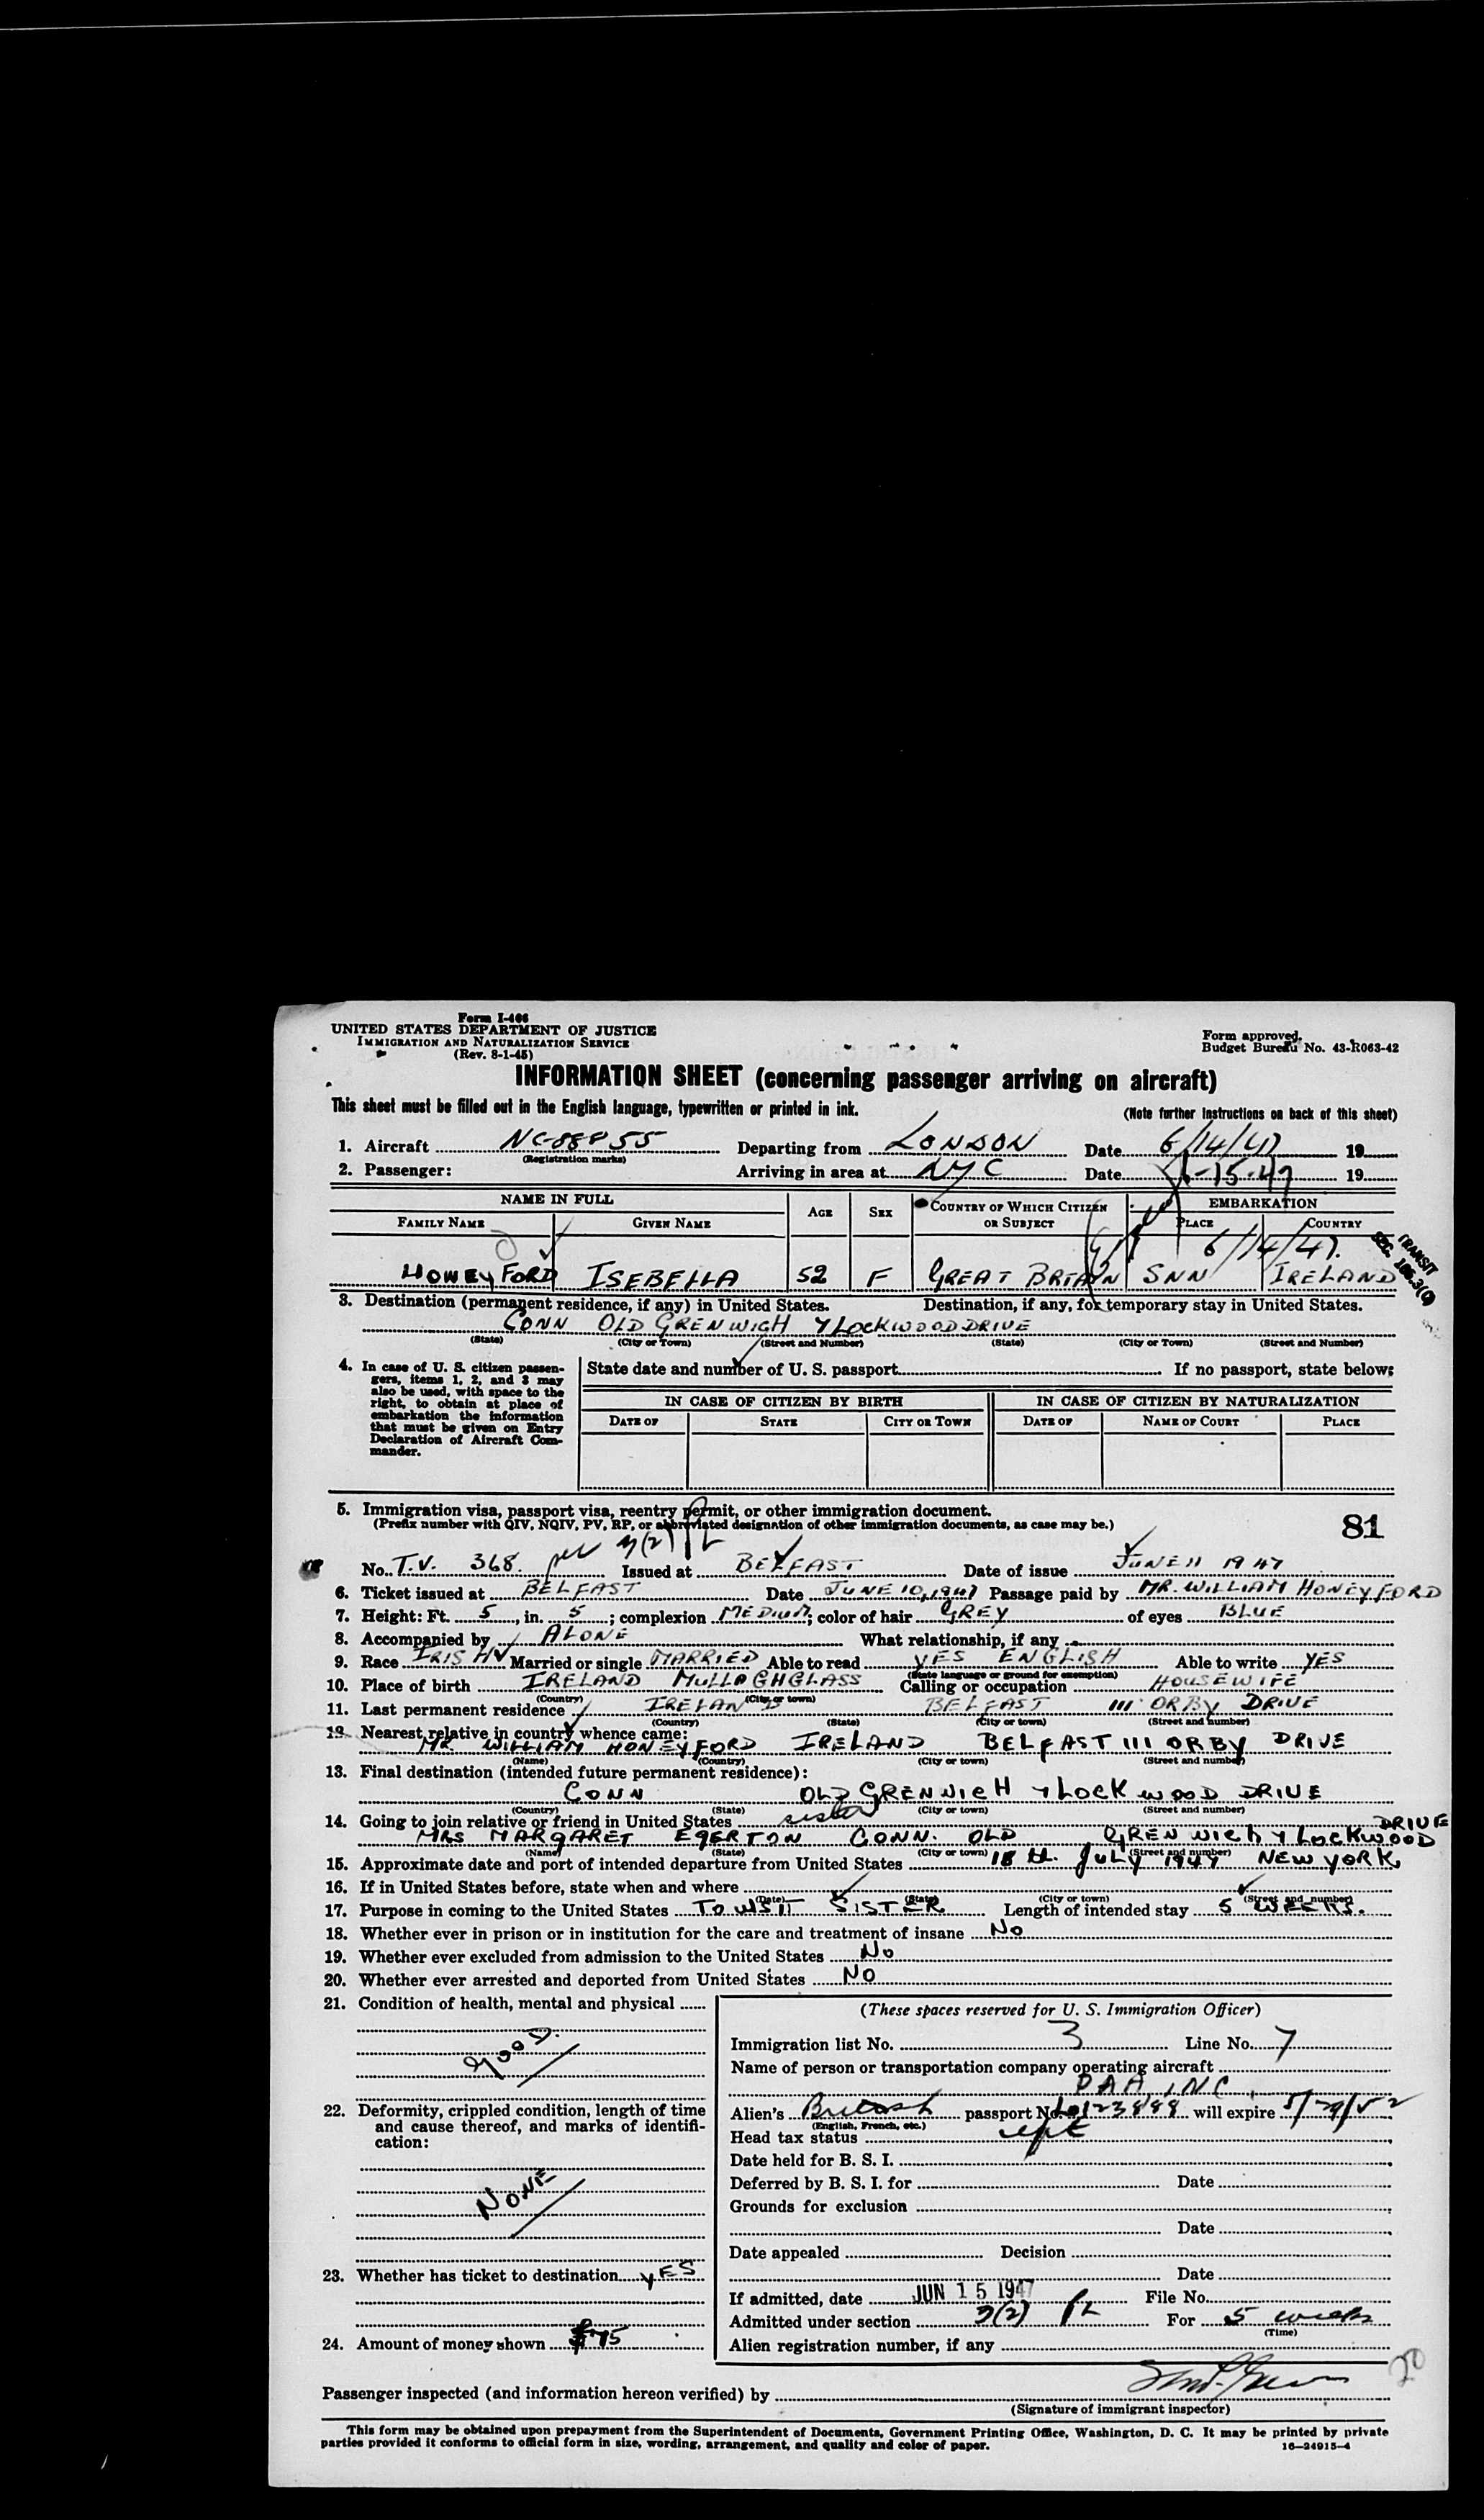 Form I-466
UNITED STATES DEPARTMENT OF JUSTICE
IMMIGRATION AND NATURALIZATION SERVICE
(Rev. 8-1-45)
Form approved.
Budget Bureau No. 43-R063-42
INFORMATION SHEET (concerning passenger arriving on aircraft)
This sheet must be filled out in the English language, typewritten or printed in ink.
(Note further instructions on back of this sheet)
1. Aircraft NC-88855 Departing from LONDON Date 6/14/47 19
(Registration marks)
2. Passenger: Arriving in area at NYC Date 6-15-47 19
NAME IN FULL AGE SEX COUNTRY OF WHICH CITIZEN OR SUBJECT EMBARKATION
FAMILY NAME GIVEN NAME PLACE COUNTRY
6/14/47.
HONEYFORD ISEBELLA 52 F GREAT BRTAIN SNN IRELAND
TRANSIT
SEC. 106.3(C)
3. Destination (permanent residence, if any) in United States. Destination, if any, for temporary stay in United States.
CONN OLD GRENWICH 7 LOCKWOOD DRIVE
(State) (City or Town) (Street and Number) (State) (City or Town) (Street and Number)
4. In case of U. S. citizen passengers, items 1, 2, and 3 may also be used, with space to the right, to obtain at place of embarkation the information that must be given on Entry Declaration of Aircraft Commander.
State date and number of U. S. passport If no passport, state below:
IN CASE OF CITIZEN BY BIRTH IN CASE OF CITIZEN BY NATURALIZATION
DATE OF STATE CITY OR TOWN DATE OF NAME OF COURT PLACE
5. Immigration visa, passport visa, reentry permit, or other immigration document.
(Prefix number with QIV, NQIV, PV, RP, or abbreviated designation of other immigration documents, as case may be.)
81
3(2)
No. T.V. 368. Issued at BELFAST Date of issue JUNE 11 1947
6. Ticket issued at BELFAST Date JUNE 10, 1947 Passage paid by MR. WILLIAM HONEYFORD
7. Height: Ft. 5, in. 5; complexion MEDIUM; color of hair GREY of eyes BLUE
8. Accompanied by ALONE What relationship, if any
9. Race IRISH Married or single MARRIED Able to read YES ENGLISH Able to write YES
(State language or ground for exemption)
10. Place of birth IRELAND MULLAGHGLASS Calling or occupation HOUSEWIFE
(Country) (City or town)
11. Last permanent residence IRELAND BELFAST 111 ORBY DRIVE
(Country) (State) (City or town) (Street and number)
12. Nearest relative in country whence came:
MR. WILLIAM HONEYFORD IRELAND BELFAST 111 ORBY DRIVE
(Name) (Country) (City or town) (Street and number)
13. Final destination (intended future permanent residence):
CONN OLD GRENWICH 7 LOCKWOOD DRIVE
(Country) (State) (City or town) (Street and number)
14. Going to join relative or friend in United States sister
MRS MARGARET EGERTON CONN. OLD GRENWICH 7 LOCKWOOD DRIVE
(Name) (State) (City or town) (Street and number)
15. Approximate date and port of intended departure from United States 18 th. JULY 1947 NEW YORK
16. If in United States before, state when and where
(Date) (State) (City or town) (Street and number)
17. Purpose in coming to the United States TO VISIT SISTER Length of intended stay 5 WEEKS.
18. Whether ever in prison or in institution for the care and treatment of insane No
19. Whether ever excluded from admission to the United States No
20. Whether ever arrested and deported from United States NO
21. Condition of health, mental and physical
GOOD.
22. Deformity, crippled condition, length of time and cause thereof, and marks of identification:
NONE
23. Whether has ticket to destination YES
24. Amount of money shown $75
(These spaces reserved for U. S. Immigration Officer)
Immigration list No. 3 Line No. 7
Name of person or transportation company operating aircraft
PAA, INC.
Alien's British passport No. will expire 5/29/52
(English, French, etc.)
Head tax status
Date held for B. S. I.
Deferred by B. S. I. for Date
Grounds for exclusion
Date
Date appealed Decision
Date
If admitted, date JUN 15 1947 File No.
Admitted under section 3(2) For 5 weeks
(Time)
Alien registration number, if any
20
Passenger inspected (and information hereon verified) by
(Signature of immigrant inspector)
This form may be obtained upon prepayment from the Superintendent of Documents, Government Printing Office, Washington, D. C. It may be printed by private
parties provided it conforms to official form in size, wording, arrangement, and quality and color of paper. 16—24915-4